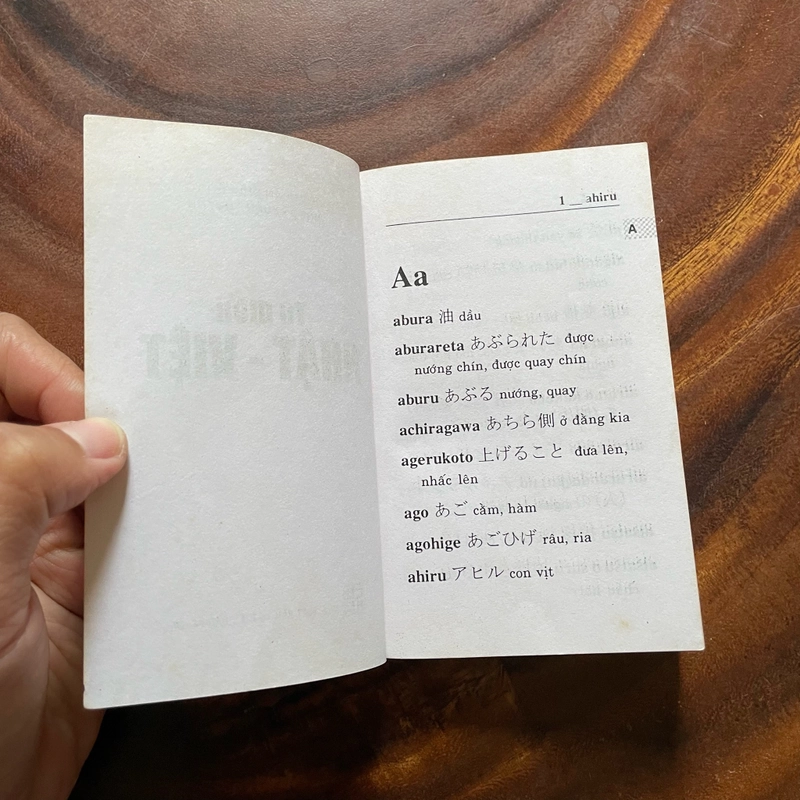 1 _ ahiru
A
Aa
abura 油 dầu
aburareta あぶられた được
nướng chín, được quay chín
aburu あぶる nướng, quay
achiragawa あちら側 ở đằng kia
agerukoto 上げること đưa lên,
nhấc lên
ago あご cằm, hàm
agohige あごひげ râu, ria
ahiru アヒル con vịt